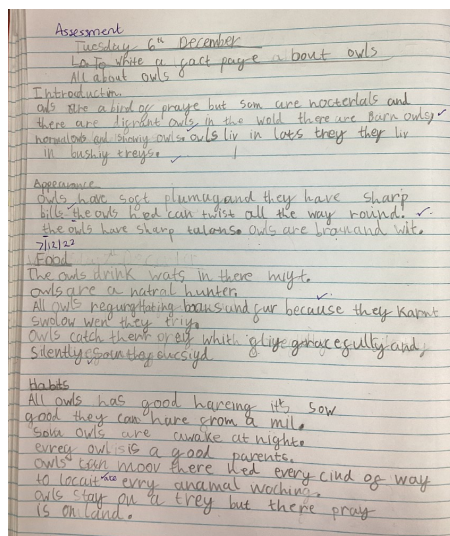 Assessment
Tuesday 6th December
Lo To white a fact page about owls
All about owls
Introduction
owls are a bird of praye but som are nocterlals and
there are difrent owls in the wold there are Barn owls,
normal owls and snowiy owls. owls liv in lots they they liv
in bushiy treys.
Appearance
owls have soft plumag and they have sharp
bills. the owls hed can twist all the way round.
the owls have sharp talons. owls are bran and wit.
7/12/22
Food
The owls drink wats in there muyt.
owls are a natral hunter.
All owls and fur because they karnt
swolow wen they triy.
owls catch there prey whith gliye gracefully and
silently
Habits
All owls has good hareing it's sow
good they can hare from a mil.
Som owls are awake at night.
evrey owl is a good parents.
owls can moov there hed every cind of way
to locait evry anamal woching.
owls stay on a trey but there pray
is on land.